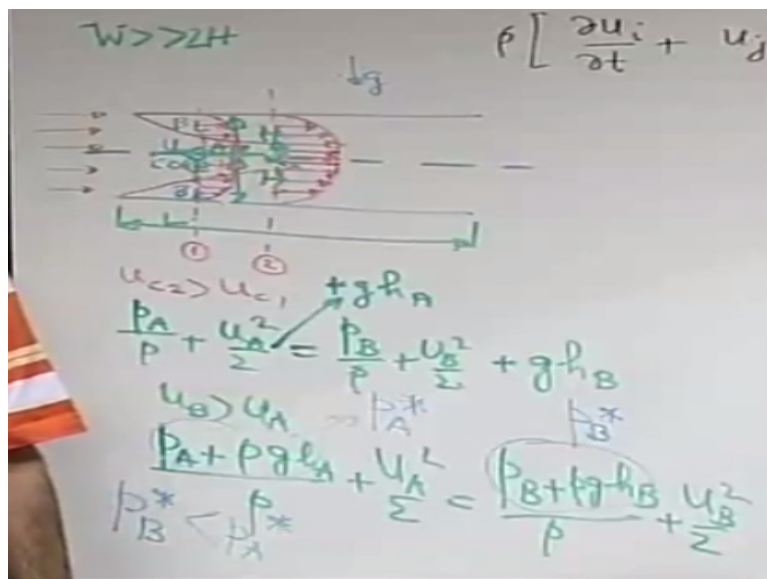 W>>2H
ρ[ ∂u_i/∂t + u_j
↓g
① ②
u_c2 > u_c1
+gh_A
p_A/ρ + u_A²/2 = p_B/ρ + u_B²/2 + gh_B
u_B > u_A
p_A*
p_B*
(p_A + ρgh_A)/ρ + u_A²/2 = (p_B + ρgh_B)/ρ + u_B²/2
p_B* < p_A*